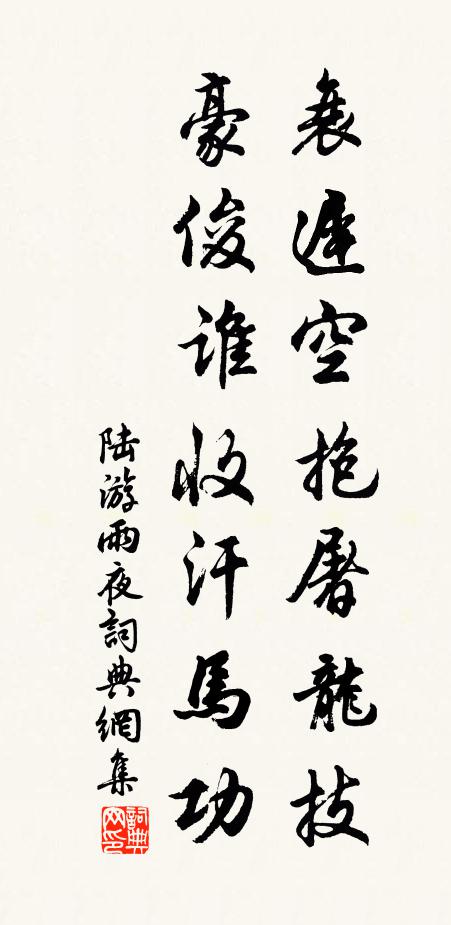 衰遲空抱屠龍技
豪俊誰收汗馬功
陸游雨夜詞典網集
詞典網印